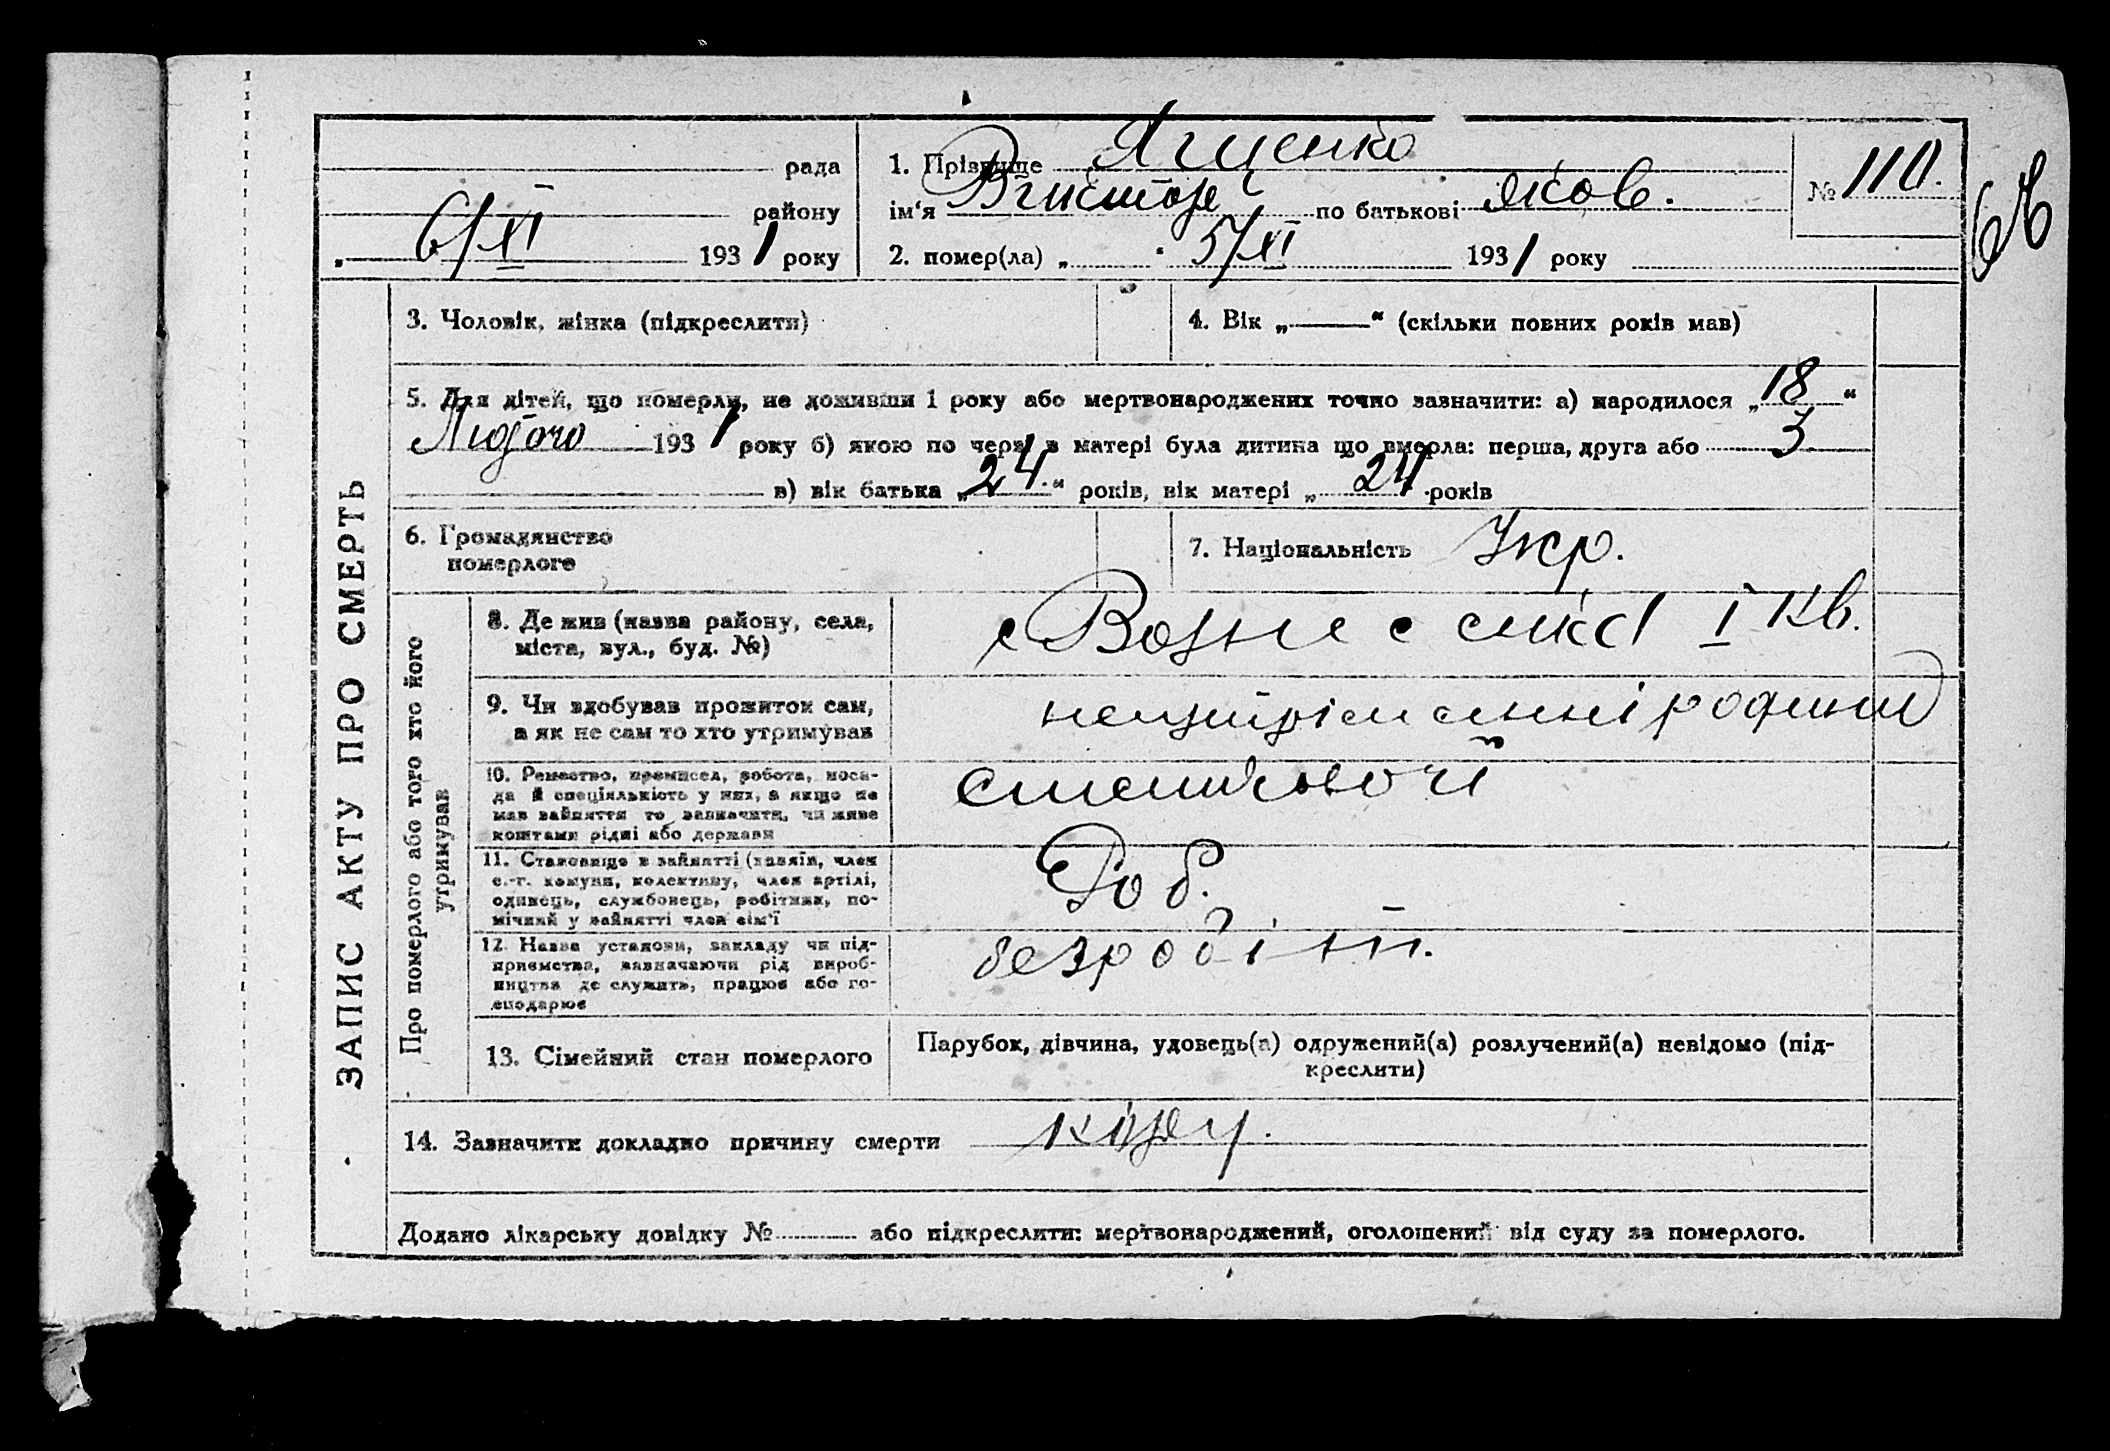 рада
району
„ 6/XI 1931 року
1. Прізвище Ященко
ім‘я Виктор по батькові яков.
2. помер(ла) „ “ 5/XI 1931 року
№ 110.
66
ЗАПИС АКТУ ПРО СМЕРТЬ
3. Чоловік, жінка (підкреслити)
4. Вік „ “ (скільки повних років мав)
5. Для дітей, що померли, не доживши 1 року або мертвонароджених точно зазначити: а) народилося „18“
Лютого 1931 року б) якою по черзі в матері була дитина що вмерла: перша, друга або 3
в) вік батька „24.“ років, вік матері „ 24 років
6. Громадянство
померлого
7. Національність Укр.
Про померлого або того хто його
утримував
8. Де жив (назва району, села,
міста, вул., буд. №)
I кв.
9. Чи здобував прожиток сам,
а як не сам то хто утримував
родини
10. Ремество, промисел, робота, поса-
да й спеціяльність у них, а якщо не
мав зайняття то зазначити, чи живе
коштами рідні або держави
11. Становище в зайнятті (хазяїн, член
с.-г. комуни, колективу, член артілі,
одинець, службовець, робітник, по-
мічний у зайнятті член сім‘ї
Роб.
12. Назва установи, закладу чи під-
приємства, зазначаючи рід вироб-
ництва де служить, працює або го-
сподарює
безробітн.
13. Сімейний стан померлого
Парубок, дівчина, удовець(а) одружений(а) розлучений(а) невідомо (під-
креслити)
14. Зазначити докладно причину смерти
Додано лікарську довідку № або підкреслити: мертвонароджений, оголошений від суду за померлого.